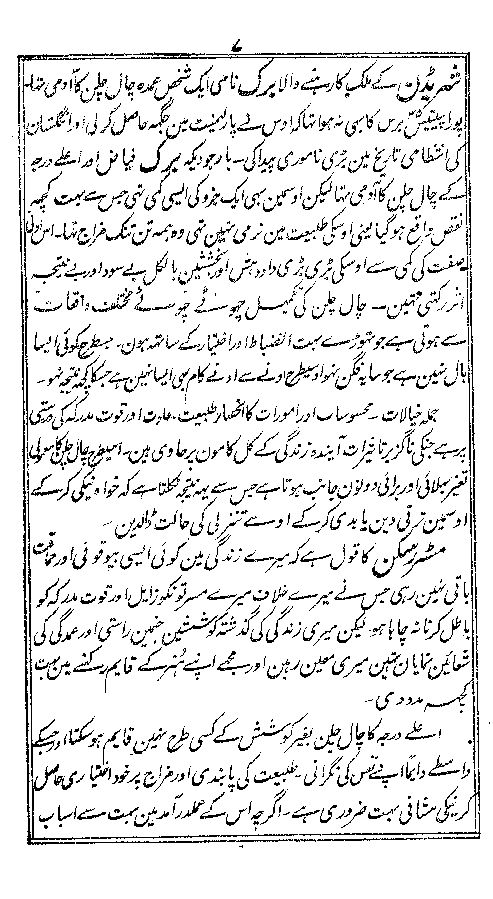 ۷
شہر بڈن کے ملک کا رہنے والا برک نامی ایک شخص عمدہ چال چلن کا آدمی تہا۔
پورا برس کا بہی نہ ہوا تہا کہ اوس نے پارلیمنٹ مین جگہہ حاصل کرلی اور انگلستان
کی انتظامی تاریخ مین بڑی ناموری پیدا کی۔ باوجودیکہ برک فیاض اور اعلے درجہ
کے چال چلن کا آدمی تہا لیکن اوسمین بہی ایک جزو کی ایسی کمی تہی جس سے بہت کچہہ
نقص واقع ہوگیا یعنی اوسکی طبیعت مین نرمی نہین تہی وہ ہمہ تن تنک مزاج تہا۔ اس
صفت کی کمی سے اوسکی بڑی بڑی داد و دہش اور بخششین بالکل بے سود اور بے نتیجہ
اثر رکہتی تہین۔ چال چلن کی تکمیل چہوٹے چہوٹے مختلف واقعات
سے ہوتی ہے جو تہوڑے بہت انضباط اور اختیار کے ساتہہ ہون۔ جسطرح کوئی ایسا
بال نہین ہے جو سایہ فگن نہو اوسیطرح ادنے سے ادنے کام بہی ایسا نہین ہے جسکا کچہہ نتیجہ نہو۔
جملہ خیالات۔ محسوسات اور امورات کا انحصار طبیعت۔ عادت اور قوت مدرکہ کی درستی
پر ہے جنکی ناگزیر تاثیرات آیندہ زندگی کے کل کامون پر حاوی ہین۔ اسیطرح چال چلن کا معمولی
تغیر بہلائی اور برائی دونون جانب ہوتا ہے جس سے یہہ نتیجہ نکلتا ہے کہ خواہ نیکی کر کے
اوسمین ترقی دین یا بدی کر کے اوسے تنزلی کی حالت ڈالدین۔
مسٹر رسکن کا قول ہے کہ میرے زندگی مین کوئی ایسی بیوقوفی اور حماقت
باقی نہین رہی جس نے میرے خلاف میرے مسرتونکو زایل اور قوت مدرکہ کو
باطل کرنا نہ چاہا ہو لیکن میری زندگی کی گذشتہ کوششین جنہین راستی اور عمدگی کی
شعائین نمایان تہین میری معین رہین اور مجہے اپنے ہنر کے قایم رکہنے مین بہت
کچہہ مدد دی۔
اعلے درجہ کا چال چلن بغیر کوشش کے کسی طرح نہین قایم ہوسکتا اور جسکے
واسطے دایماً اپنے نفس کی نگرانی۔ طبیعت کی پابندی اور مزاج پر خود اختیاری حاصل
کرنیکی مشاقی بہت ضروری ہے۔ اگرچہ اس کے عملدرآمد مین بہت سے اسباب